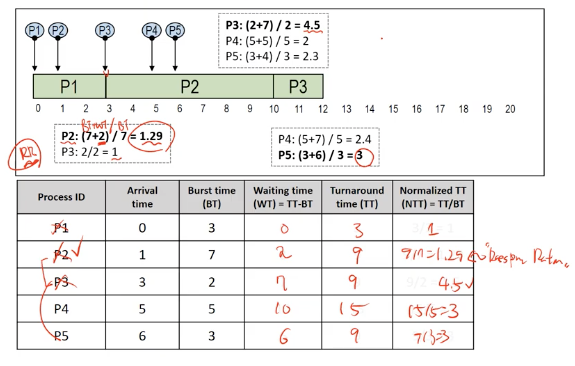 P1 P2 P3 P4 P5
P3: (2+7) / 2 = 4.5
P4: (5+5) / 5 = 2
P5: (3+4) / 3 = 2.3
P1 P2 P3
0 1 2 3 4 5 6 7 8 9 10 11 12 13 14 15 16 17 18 19 20
BT+WT / BT
P2: (7+2) / 7 = 1.29
P3: 2/2 = 1
P4: (5+7) / 5 = 2.4
P5: (3+6) / 3 = 3
RR
Process ID Arrival time Burst time (BT) Waiting time (WT) = TT-BT Turnaround time (TT) Normalized TT (NTT) = TT/BT
P1 0 3 0 3 1
P2 1 7 2 9 9/7=1.29 "Respon Ratio"
P3 3 2 7 9 4.5
P4 5 5 10 15 15/5=3
P5 6 3 6 9 =3